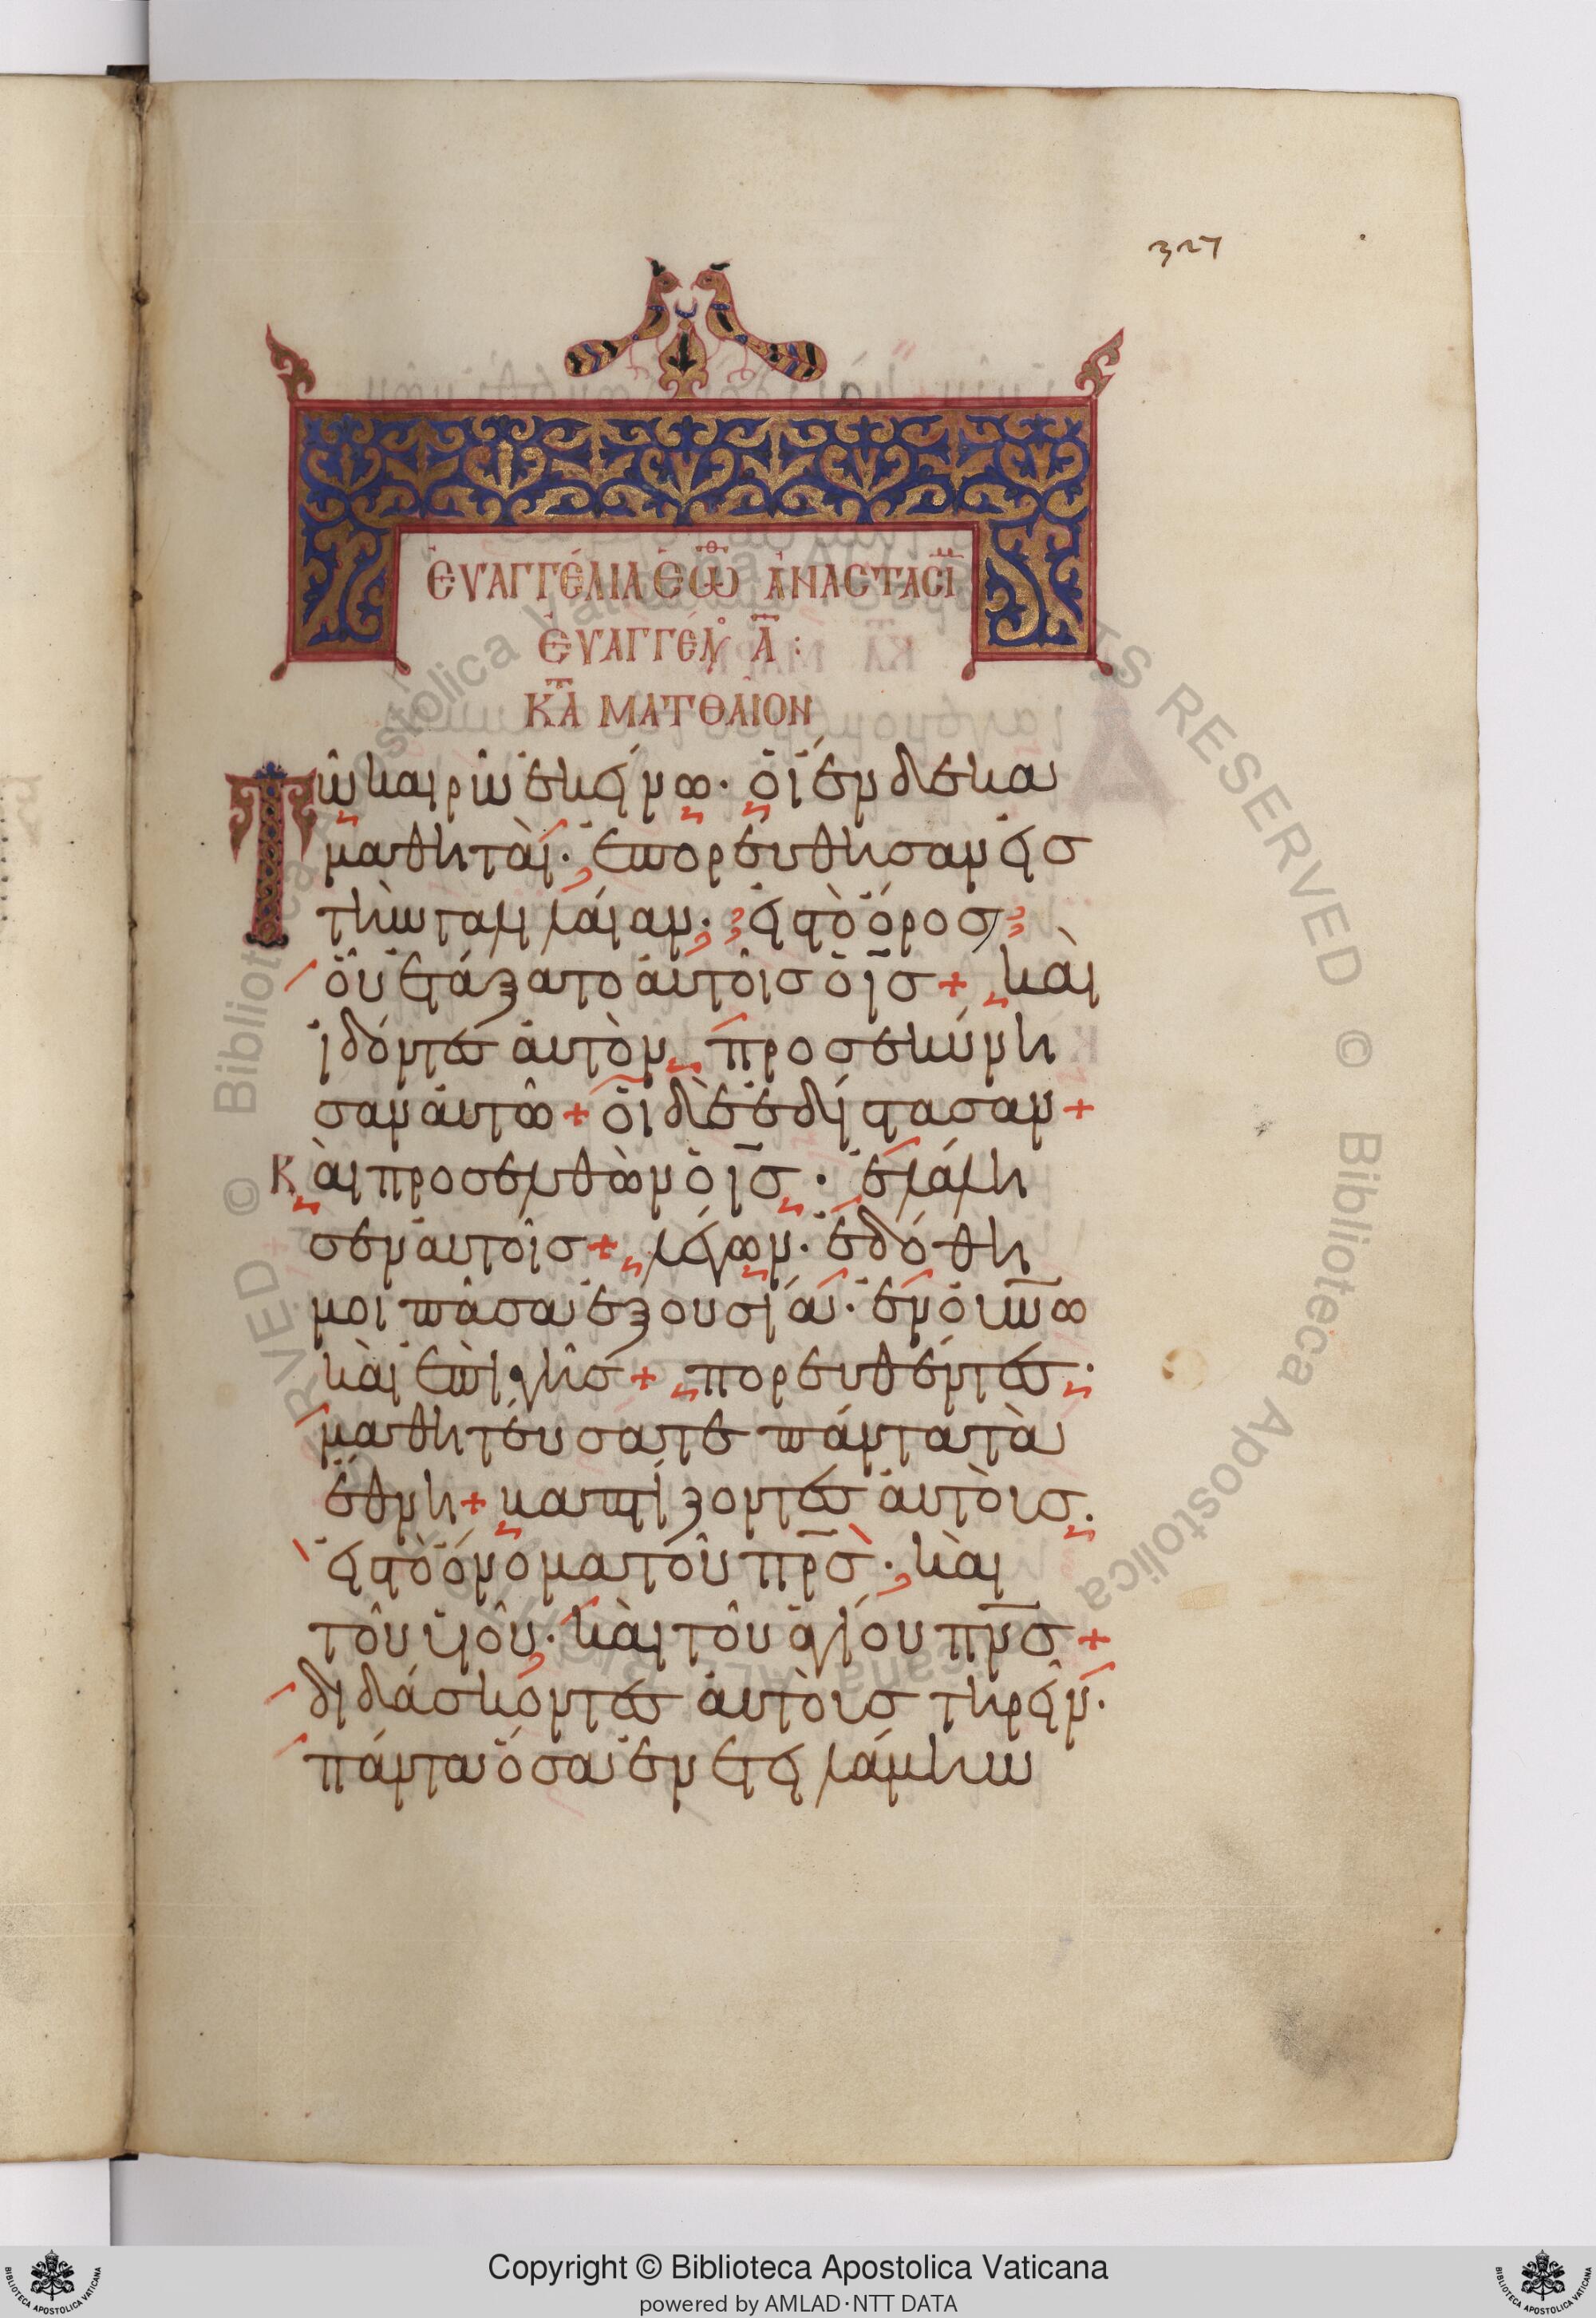 327
ΕΥΑΓΓΈΛΙΑ ἙΩΘ ἈΝΑΣΤΑΣΙΜ
ΕΥΑΓΓΈΛ Α :
ΚΑΤ ΜΑΤΘΑΙΟΝ
Τῶ καιρῶ ἐκείνω· ὁι ἕνδεκα
μαθηταὶ· ἐπορεύθησαν εἰσ
τὴν γαλιλάιαν· εἰσ τὸ ὄρος
ὁῦ ἐτάξατο ἀυτοῖσ ὁ ι̅σ̅ + καὶ
ἰδόντεσ ἀυτὸν, προσεκύνη
σαν ἀυτῶ + ὁι δὲ ἐδίστασαν +
Καὶ προσελθὼν ὁ ι̅σ̅ · ἐλάλη
σεν ἀυτοῖσ + λέγων· ἐδόθη
μοι πᾶσα ἐξουσία· ἐν ὀυ̅ν̅ω
καὶ ἐπὶ γῆσ + πορευθέντεσ·
μαθητεύσατε πάντα τὰ
ἔθνη + βαπτίζοντεσ ἀυτοὺσ.
εἰσ τὸ ὄνομα τοῦ π̅ρ̅σ̅ · καὶ
τοῦ υἱοῦ· καὶ τοῦ ἁγίου π̅ν̅σ̅ +
διδάσκοντεσ ἀυτοὺσ τηρεῖν·
πάντα ὅσα ἐνετειλάμην
Copyright © Biblioteca Apostolica Vaticana
powered by AMLAD·NTT DATA
BIBLIOTECA APOSTOLICA VATICANA
BIBLIOTECA APOSTOLICA VATICANA